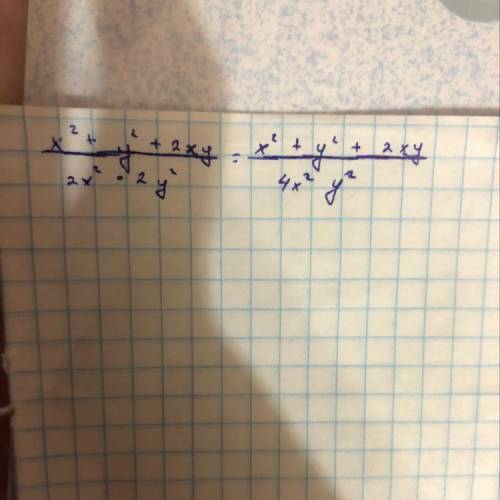 x² + y² + 2xy / 2x² · 2y² = x² + y² + 2xy / 4x² y²